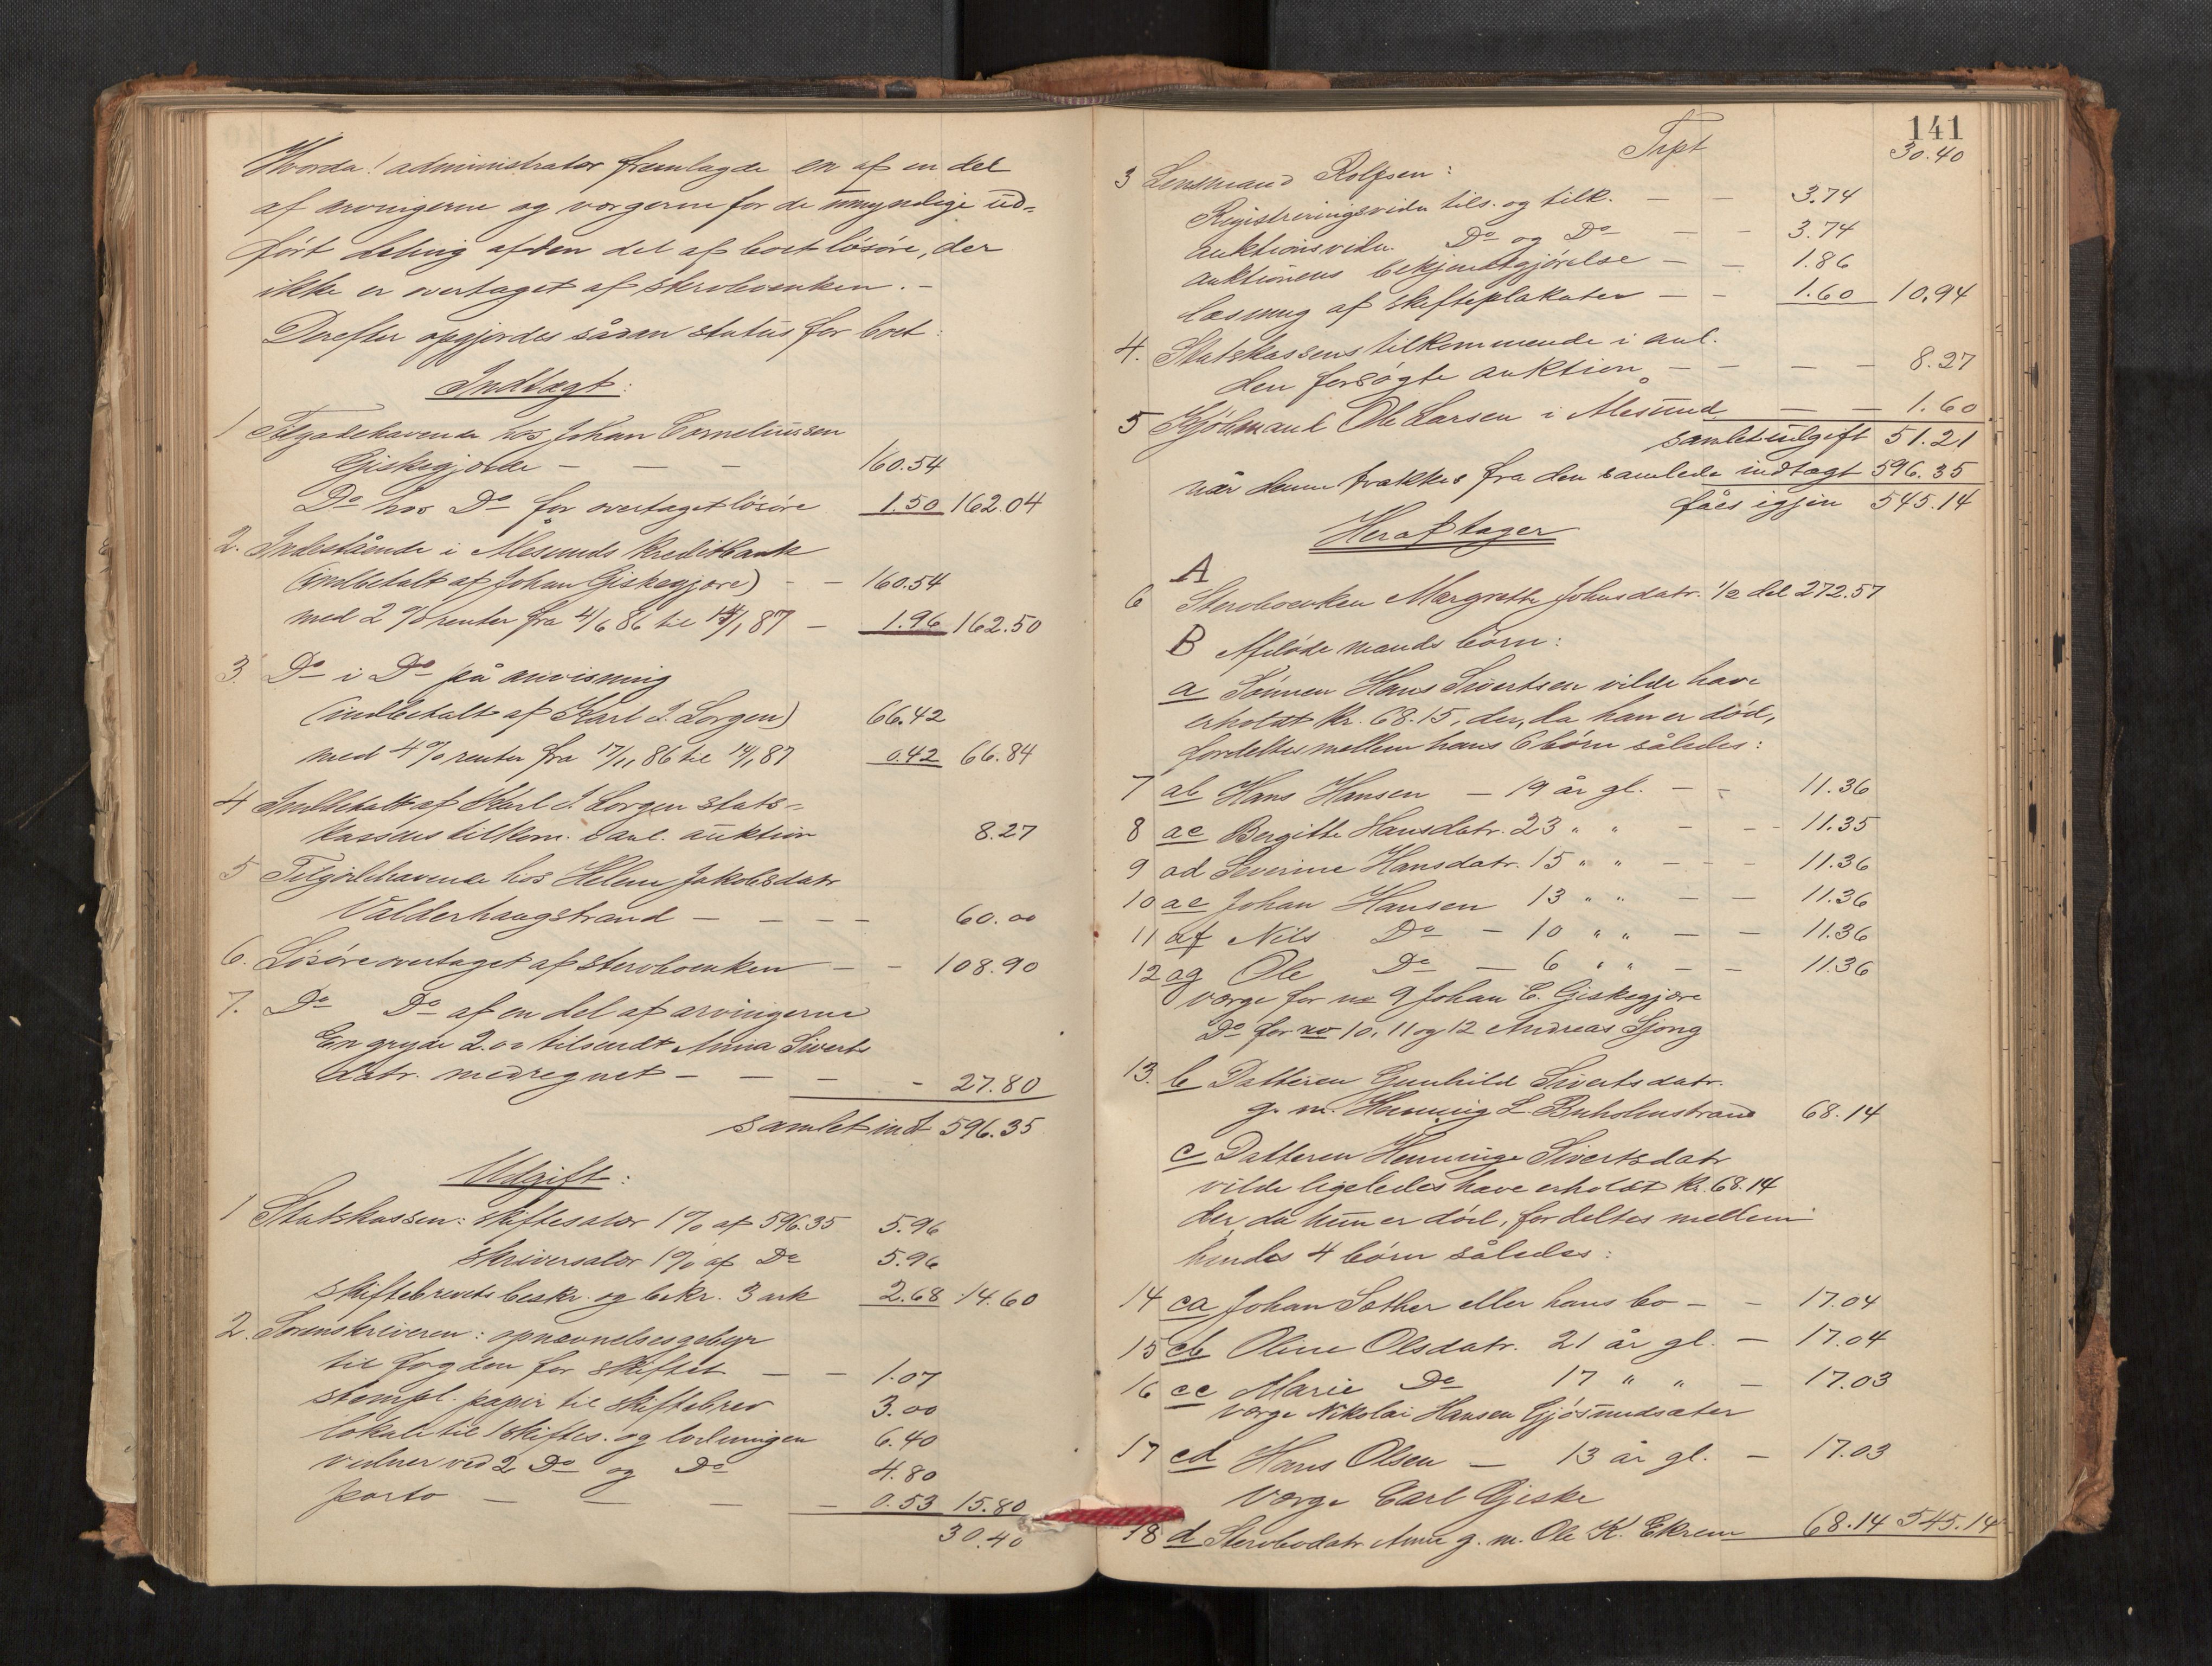 Hvorda! administrator fremlagde en af en del
af arvingerne og vergerne for de umyndige ud-
ført deling af den del af boet løsøre, der
ikke er overtaget af sterboenken. -
Derefter opgjordes sådan status for boet:
Indtægt:
1 Tilgodehavende hos Johan Corneliussen
Giskegjerde - - - 160.54
Do hos Do for overtaget løsøre 1.50 162.04
2. Indestående i Ålesunds Kreditbank
(indbetalt af Johan Giskegjøre) - - 160.54
med 2 % renter fra 4/6 86 til 14/1 87 - 1.96 162.50
3. Do i Do på anvisning
(indbetalt af Karl J. Sorgen) 66.42
med 4 % renter fra 17/11 86 til 14/1 87 0.42 66.84
4 Indbetalt af Karl J. Sorgen stats-
kassens tilkom. i anl. auktion 8.27
5 Tilgodehavende hos Helene Jakobsdatr
Valderhaugstrand - - - - 60.00
6. Løsøre overtaget af sterboenken - - 108.90
7. Do Do af en del af arvingerne
En gryde 2.00 tilsendt Anna Siverts
datr. medregnet - - - - 27.80
samlet indt 596.35
Udgift:
1 Statskassen: skiftesalær 1 % af 596.35 5.96
skriversalær 1 % af Do 5.96
skiftebrevets beskr. og bekr. 3 ark 2.68 14.60
2. Sorenskriveren: opnævnelsesgebyr
til fogden for skiftet - - 1.07
stempl. papir til skiftebrev 3.00
lokale til skiftes. og lodningen 6.40
vidner ved 2 Do og Do 4.80
porto - - - - 0.53 15.80
30.40
141
Trpt 30.40
3 Lensmand Rolfsen:
Registreringsvidn tils. og tilk. - - 3.74
auktionsvidn. Do og Do - - 3.74
auktionens bekjendtgjørelse - - 1.86
læsning af skifteplakater - - 1.60 10.94
4. Statskassens tilkommende i anl.
den forsøgte auktion - - - - 8.27
5 Kjøbmand Ole Larsen i Ålesund - - 1.60
samlet udgift 51.21
når denne trækkes fra den samlede indtægt 596.35
fåes igjen 545.14
Heraf tager
A
6 Sterboenken Margrethe Johnsdatr. 1/2 del 272.57
B Afdøde mands børn:
a Sønnen Hans Sivertsen vilde have
erholdt Kr. 68.15, der, da han er død,
fordeltes mellem hans 6 børn således:
7 ab Hans Hansen - 19 år gl. - - 11.36
8 ac Bergitte Hansdatr. 23 " " - - 11.35
9 ad Severine Hansdatr. 15 " " - - - 11.36
10 ae Johan Hansen 13 " " - - 11.36
11 af Nils Do - 10 " " - - 11.36
12 ag Ole Do - 6 " " - - 11.36
Værge for no 9 Johan C. Giskegjøre
Do for no 10, 11 og 12 Andreas Sjong
13. b Datteren Gunhild Sivertsdatr.
g. m. Henning L. Buholmstrand 68.14
c Datteren Henninge Sivertsdatr
vilde ligeledes have erholdt Kr. 68.14
der, da hun er død, fordeltes mellem
hendes 4 børn således:
14 ca Johan Sæther eller hans bo - - 17.04
15 cb Oline Olsdatr. 21 år gl. - 17.04
16 cc Marie Do 17 " " - 17.03
Værge Nikolai Hansen Gjøsundsæter
17 cd Hans Olsen - 13 år gl. - 17.03
Værge Carl Gjeske
18 d Sterbodatr Anne g. m. Ole K. Ekrem 68.14 545.14